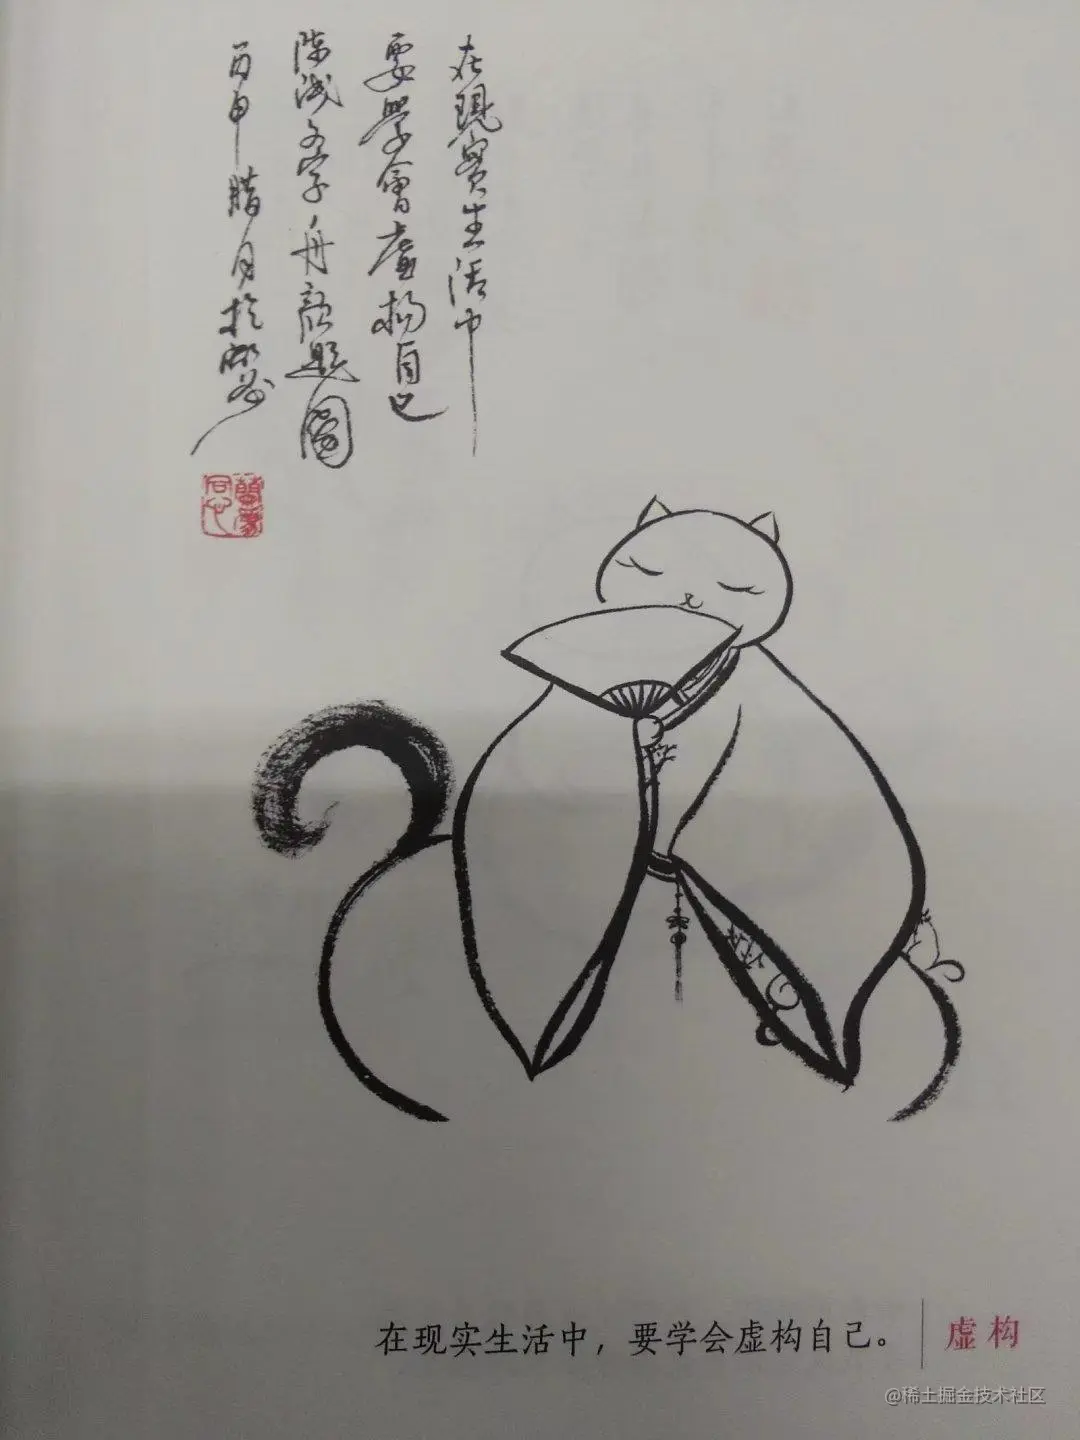 在現實生活中
要學會虛构自己
陳淺文字舟歌題圖
丙申腊月於
在现实生活中，要学会虚构自己。
虚构
@稀土掘金技术社区